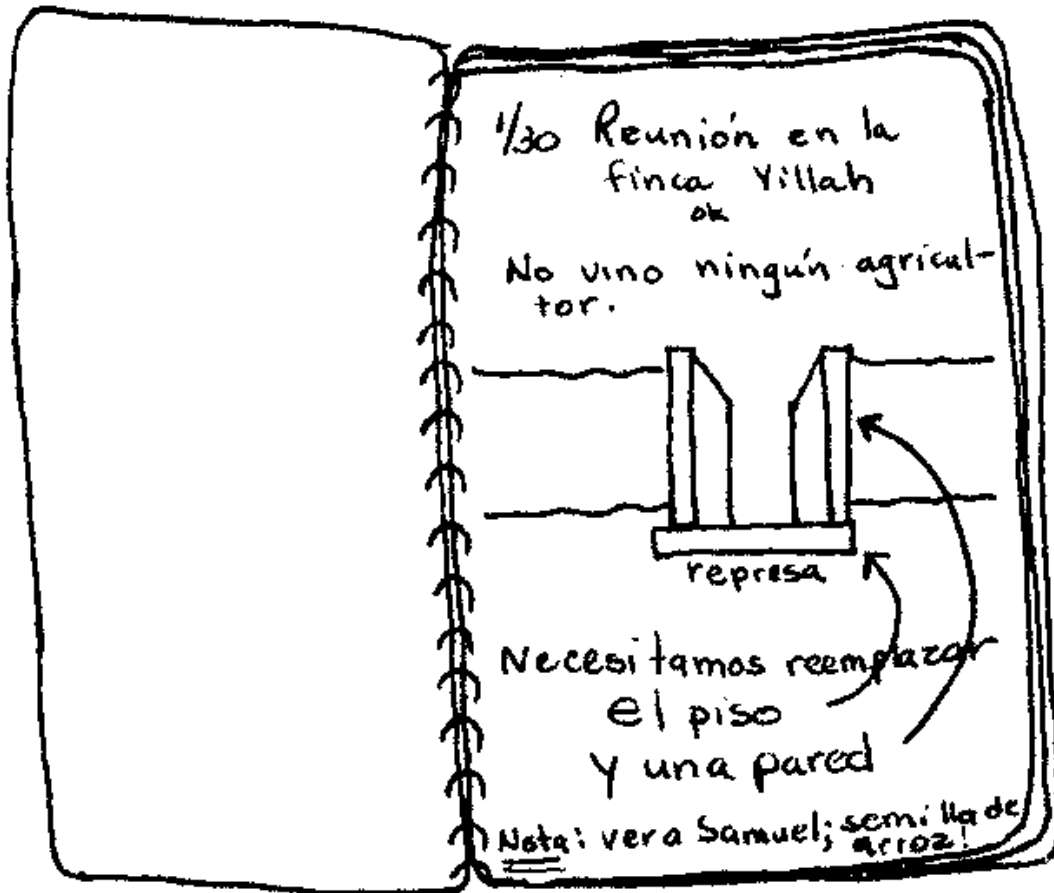 1/30 Reunión en la
finca Yillah
ok
No vino ningún agricul-
tor.
represa
Necesitamos reemplazar
el piso
y una pared
Nota: ver a Samuel; semilla de
arroz!